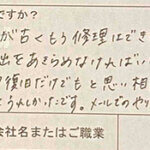 ですか?
が古くもう修理はでき
出をあきらめなければい
復旧だけでもと思い相
うれしかったです。メールでのやり
会社名またはご職業